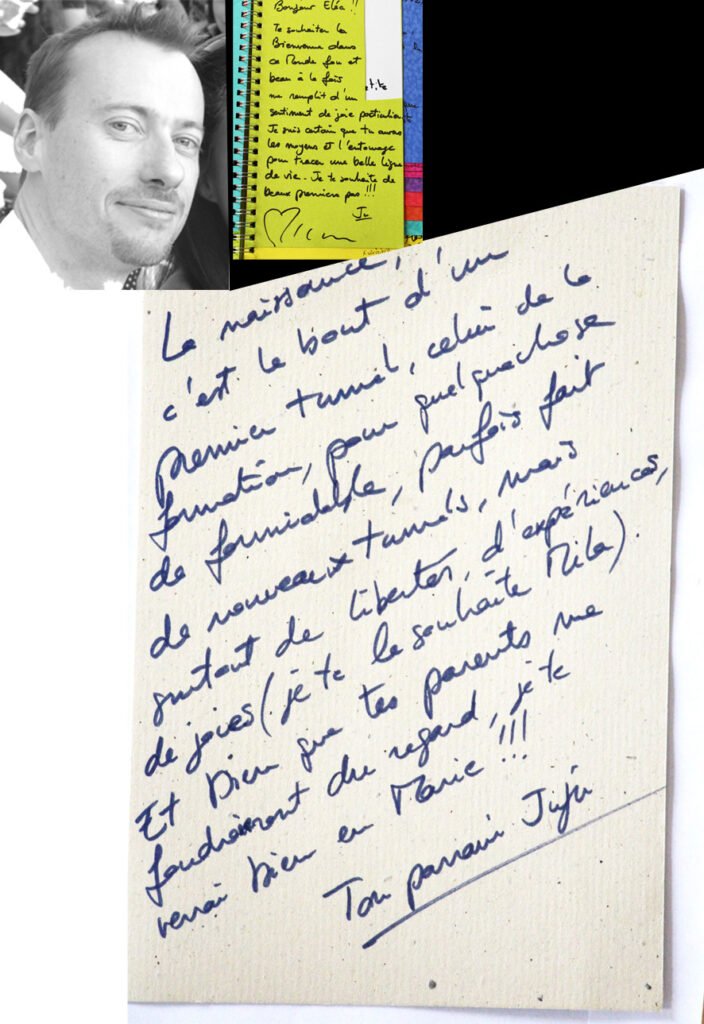 Bonjour Eléa !!
Te souhaiter la
Bienvenue dans
ce Monde fou et
beau à la fois
me remplit d'un
sentiment de joie particulier.
Je suis certain que tu auras
les moyens et l'entourage
pour tracer une belle ligne
de vie. Je te souhaite de
beaux premiers pas !!!
Ju
La naissance,
c'est le bout d'un
premier tunnel, celui de la
formation, pour quelquechose
de formidable, parfois fait
de nouveaux tunnels, mais
surtout de libertés, d'expériences,
de joies (je te le souhaite Mila).
Et bien que tes parents me
foudroieront du regard, je te
verrai bien en Marie !!!
Ton parrain Juju